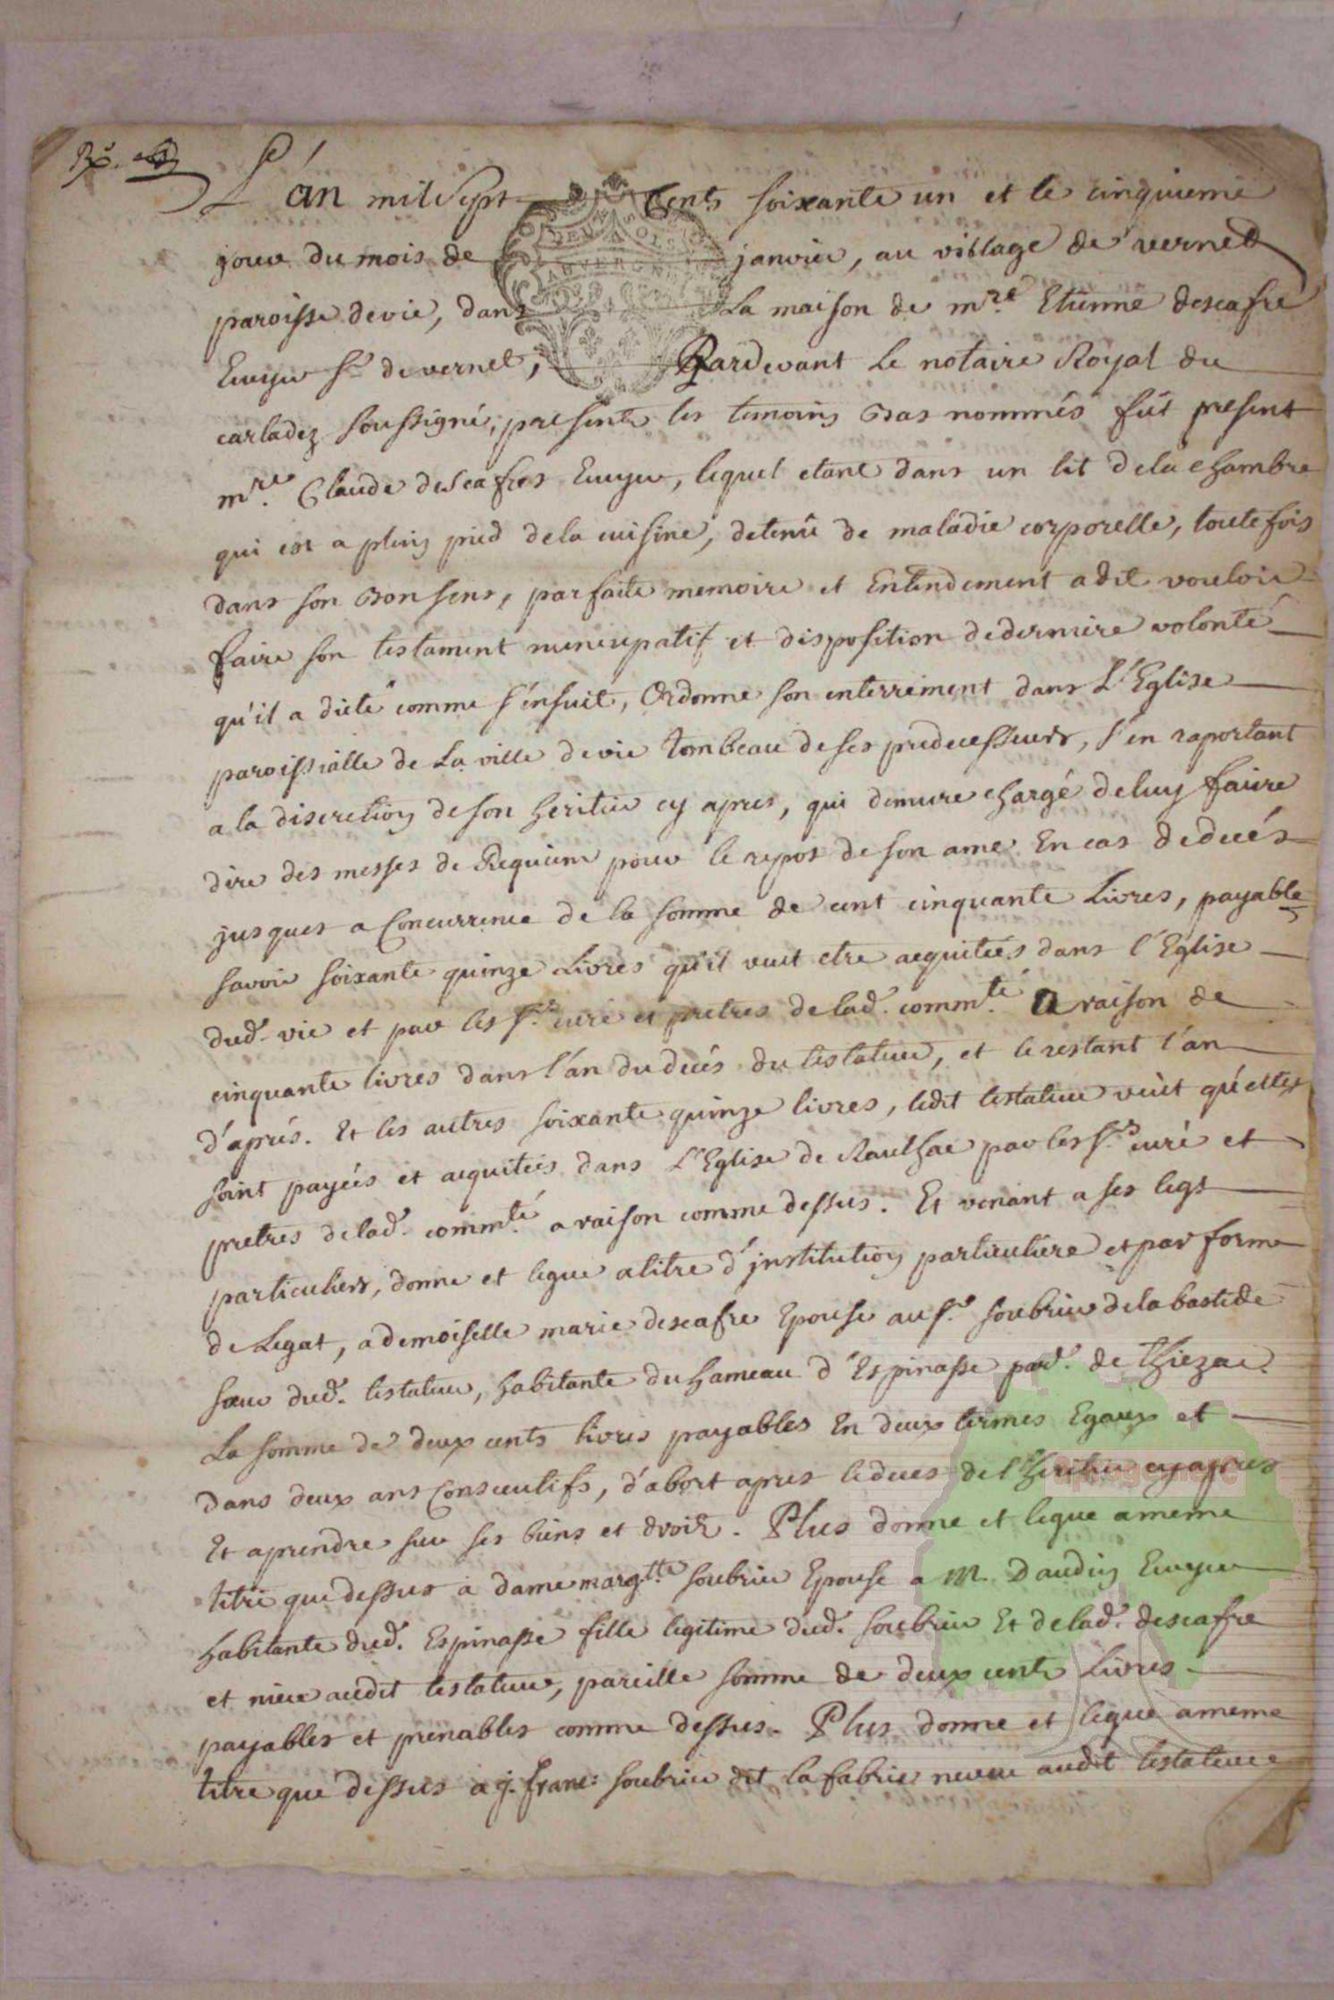 L'án mil sept cents soixante un et le cinquieme
jour du mois de janvier, au village de vernet
paroisse de vic, dans La maison de mre. Etienne descafre
Ecuyer sr. de vernet, Pardevant Le notaire Royal du
carladez soussigné, présents les temoins Bas nommés fût present
mre. Claude descafres Ecuyer, lequel etant dans un lit de la chambre
qui est a plein pied de la cuisine, detenû de maladie corporelle, toutefois
dans son Bon sens, parfaite memoire et Entendement a dit vouloir
faire son testament nuncupatif et disposition de derniere volonté
qu'il a dicté comme s'ensuit, Ordonne son enterrement dans L'Eglise
paroissialle de La ville de vic tombeau de ses predecesseurs, s'en raportant
a la discretion de son heritier cy apres, qui demeure chargé de luy faire
dire des messes de Requiem pour le repos de son ame En cas de decés
jusques a Concurrence de la somme de cent cinquante Livres, payable
savoir soixante quinze Livres qu'il veut etre acquitées dans l'Eglise
dud. vic et par les srs. curé et pretres de lad. commté. a raison de
cinquante livres dans l'an du decés du testateur, et le restant l'an
d'aprés. Et les autres soixante quinze livres, ledit testateur veut qu'elles
soint payées et acquitées dans L'Eglise de Raulhac par les srs. curé et
pretres de lad. commté. a raison comme dessus. Et venant a ses legs
particuliers, donne et legue a titre d'jnstitution particuliere et par forme
de Legat, a demoiselle marie descafre Epouse au sr. soubrier de la bastide
sœur dud. testateur, habitante du hameau d'Espinasse par. de thiezac.
La somme de deux cents livres payables En deux termes Egaux et
dans deux ans Consecutifs, d'abort apres le deces de l'heritier cy apres
Et a prendre sur ses biens et droits. Plus donne et legue a meme
titre que dessus a dame margtte. soubrier Epouse a M. Daudin Ecuyer
habitante dud. Espinasse fille legitime dud. soubrier Et de lad. descafre
et niece audit testateur, pareille somme de deux cents Livres
payables et prenables comme dessus. Plus donne et legue a meme
titre que dessus a j. franc: soubrier dit lafabrie neveu audit testateur